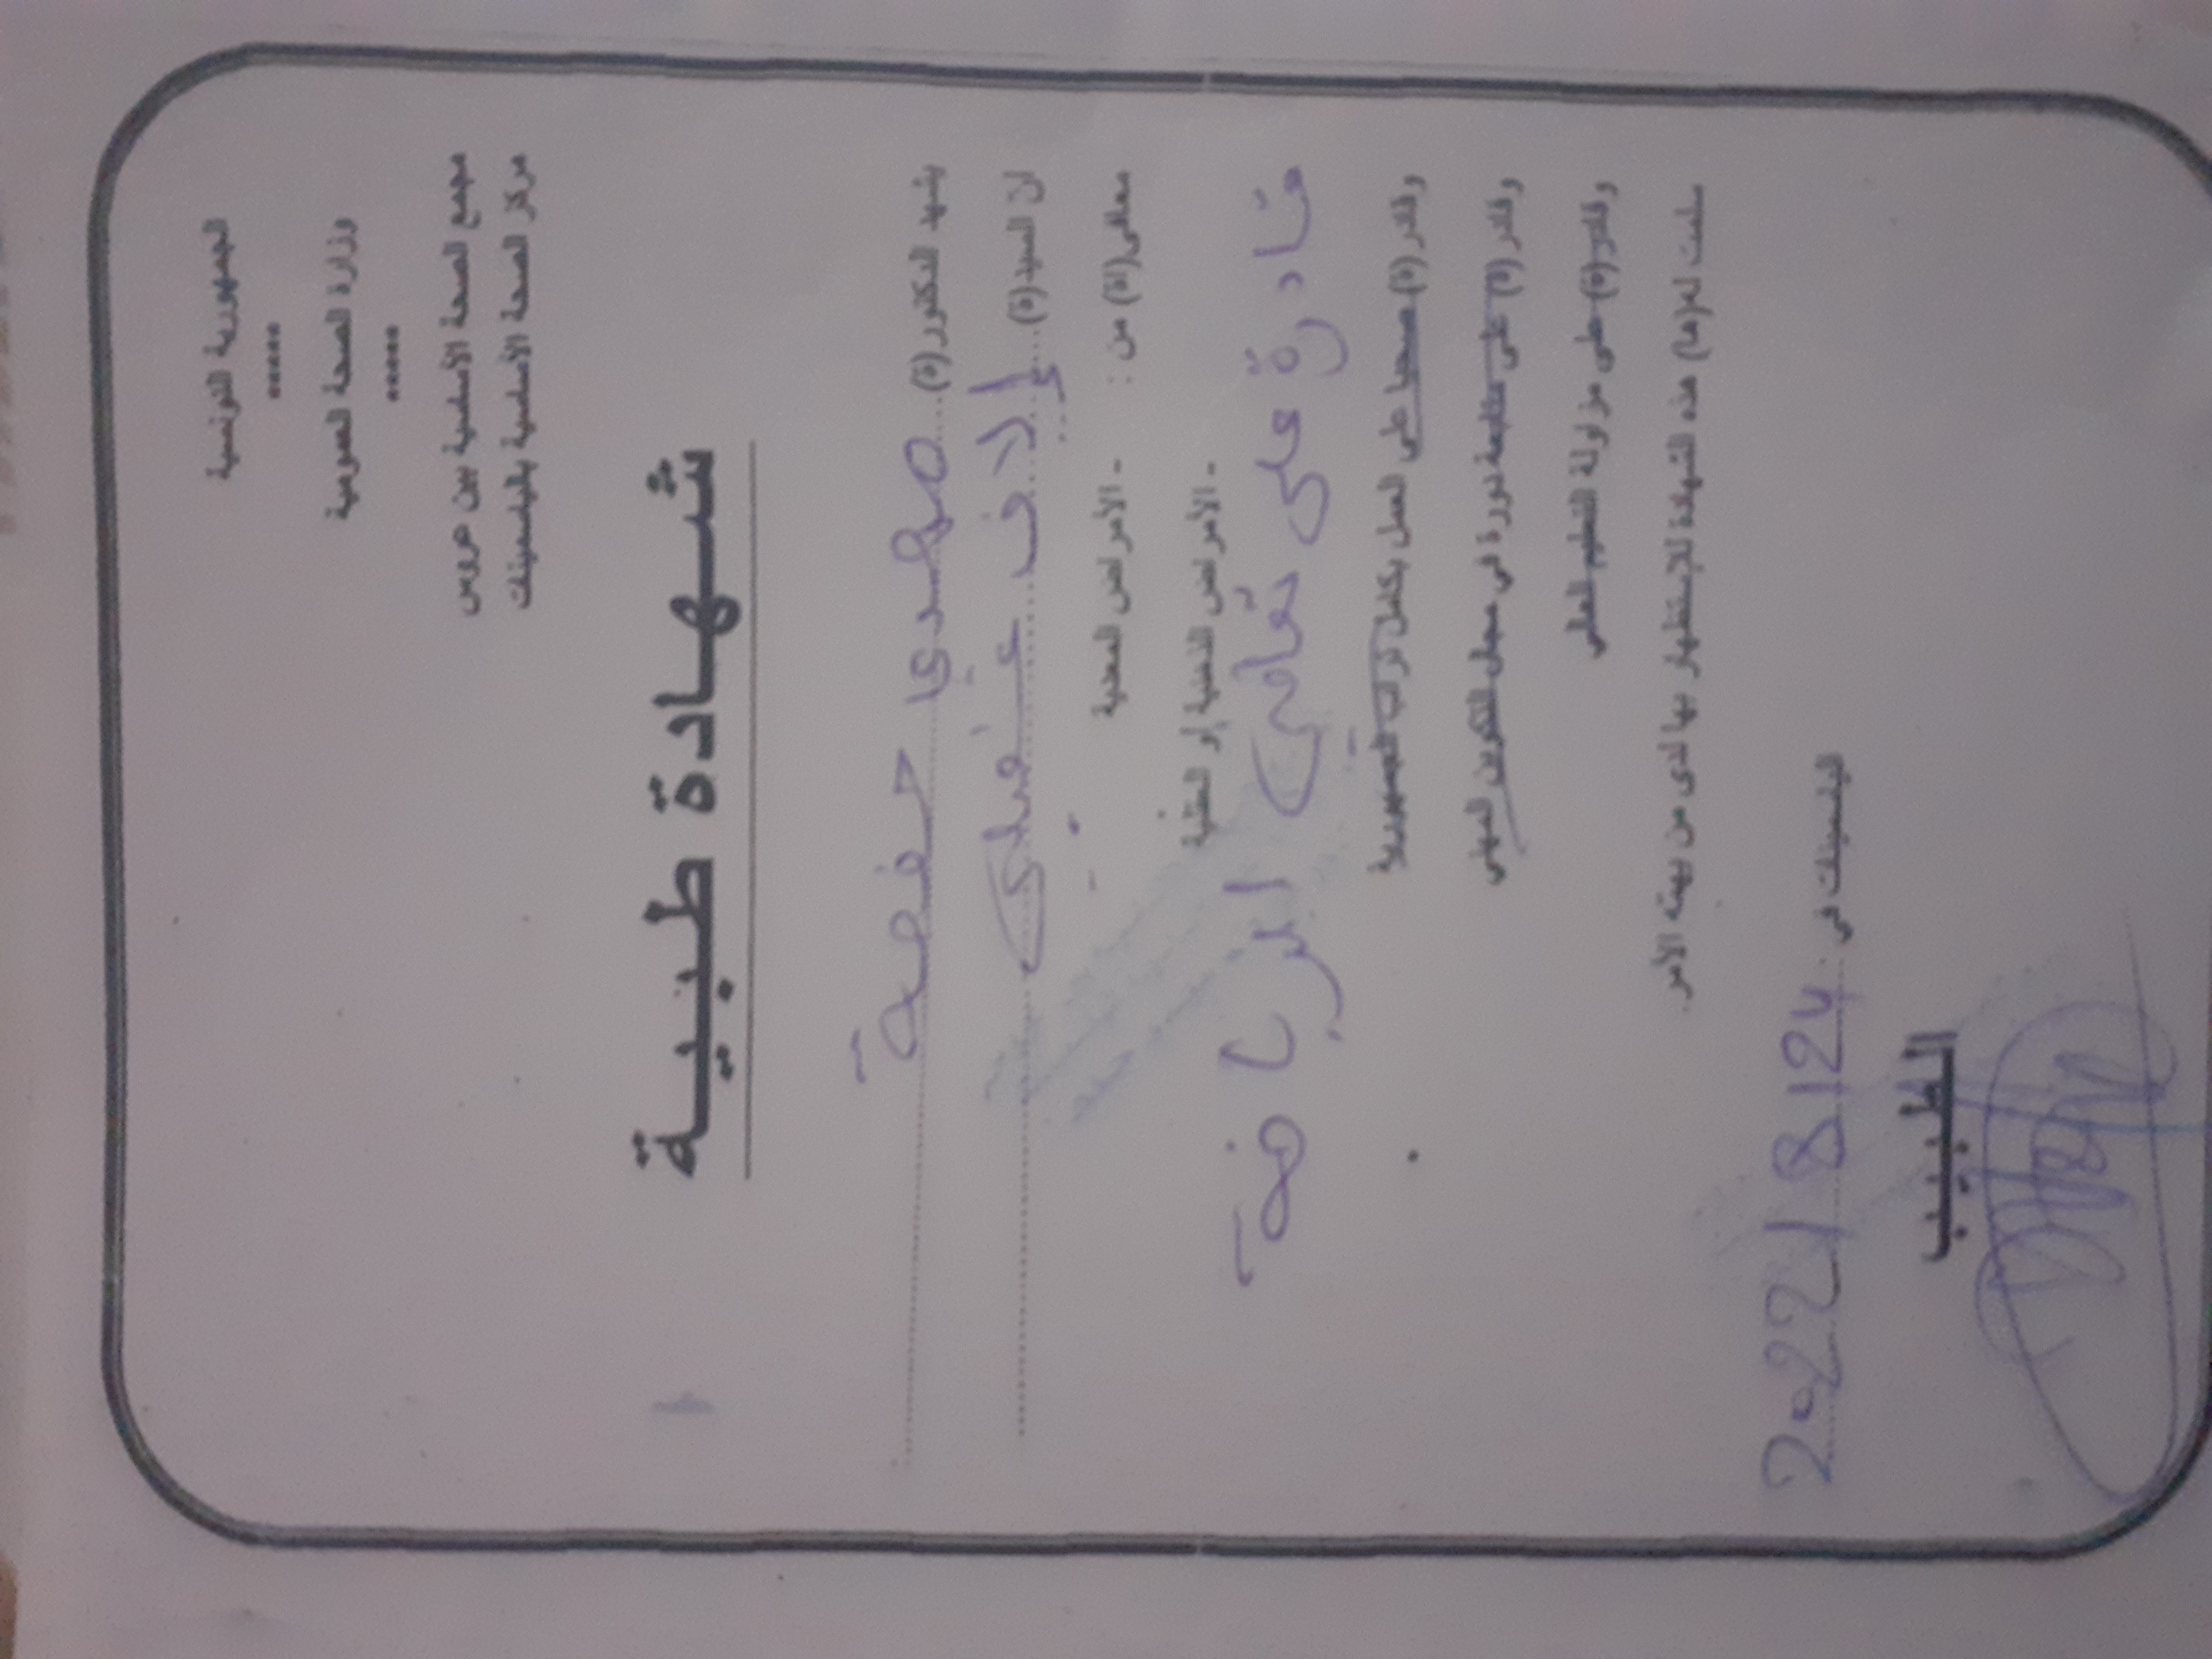 الجمهورية التونسية
*****
وزارة الصحة العمومية
*****
مجمع الصحة الأساسية ببن عروس
مركز الصحة الأساسية بالياسمينات
شهادة طبيبة
يشهد الدكتور(ة) مهدي حفصة
ان السيد(ة)
معافى(اة) من : - الأمراض المعدية
- الأمراض النفسية أو العقلية
قادرة على تعاطي الرياضة
وقادر(ة) صحيا على العمل بكامل تراب الجمهورية
وقادر(ة) على متابعة دورة في مجال التكوين المهني
وقادر(ة) على مزاولة التعليم العالي
سلمت له(ها) هذه الشهادة للإستظهار بها لدى من يهمه الأمر.
الياسمينات في 2022/8/24
الطبيب